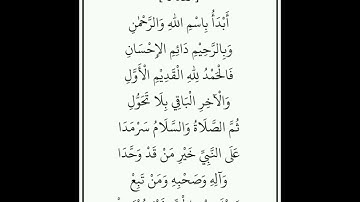 أَبْدَأُ بِاسْمِ اللهِ وَالرَّحْمٰنِ
وَبِالرَّحِيْمِ دَائِمِ الإِحْسَانِ
فَالْحَمْدُ لِلّٰهِ الْقَدِيْمِ الْأَوَّلِ
وَالْآخِرِ الْبَاقِيْ بِلَا تَحَوُّلِ
ثُمَّ الصَّلَاةُ وَالسَّلَامُ سَرْمَدَا
عَلَى النَّبِيِّ خَيْرِ مَنْ قَدْ وَحَّدَا
وَآلِهِ وَصَحْبِهِ وَمَنْ تَبِعْ